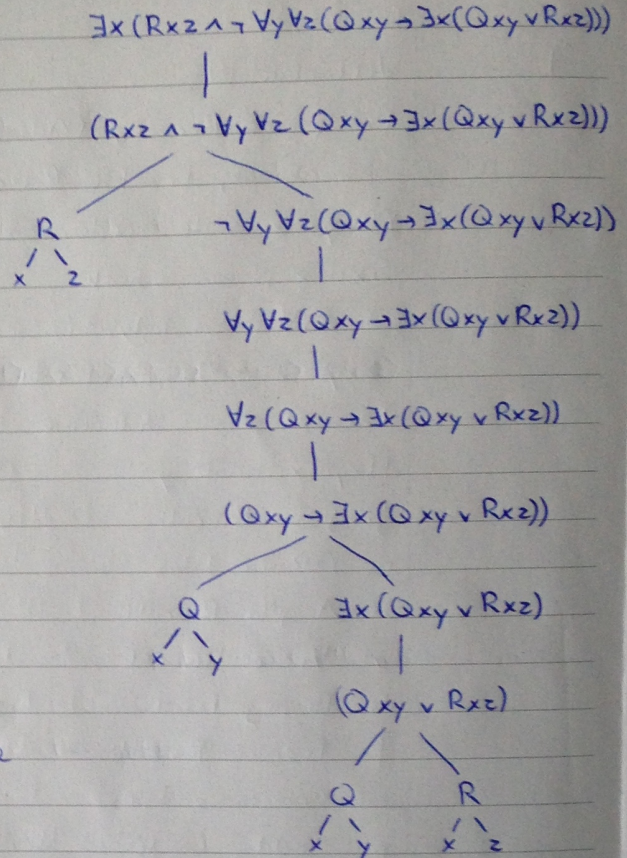 ∃x(Rxz ∧ ¬∀y∀z(Qxy → ∃x(Qxy ∨ Rxz)))
(Rxz ∧ ¬∀y∀z(Qxy → ∃x(Qxy ∨ Rxz)))
R ¬∀y∀z(Qxy → ∃x(Qxy ∨ Rxz))
x z
∀y∀z(Qxy → ∃x(Qxy ∨ Rxz))
∀z(Qxy → ∃x(Qxy ∨ Rxz))
(Qxy → ∃x(Qxy ∨ Rxz))
Q ∃x(Qxy ∨ Rxz)
x y
(Qxy ∨ Rxz)
Q R
x y x z